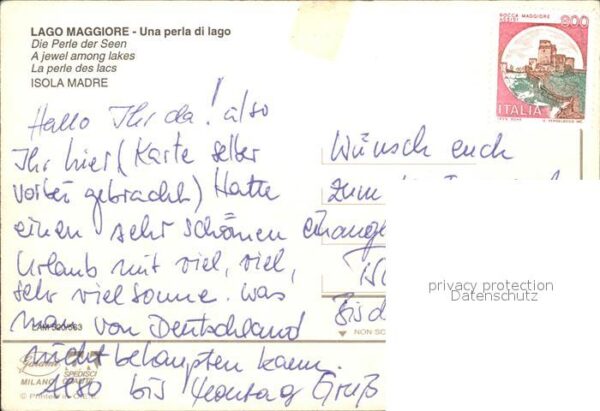 LAGO MAGGIORE - Una perla di lago
Die Perle der Seen
A jewel among lakes
La perle des lacs
ISOLA MADRE
ROCCA MAGGIORE
800
ITALIA
Hallo Ihr da! also
Ihr hier (Karte selber
vorbei gebracht) Hatte
einen sehr schönen
Urlaub mit viel, viel,
sehr viel Sonne. was
man von Deutschland
nicht behaupten kann.
Also bis Montag Gruß
Wünsch euch
zum
Bis d
LAM 520/063
NON SC
MILANO
SPEDISCI
© Printed in
privacy protection
Datenschutz